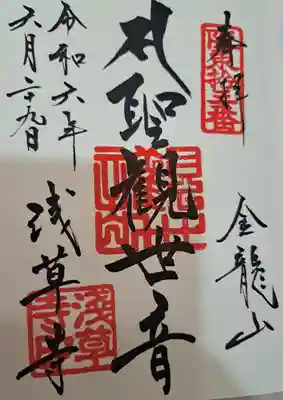 奉拝
坂東拾三番
金龍山
聖観世音
浅草寺
浅草寺印
令和六年
六月二十九日